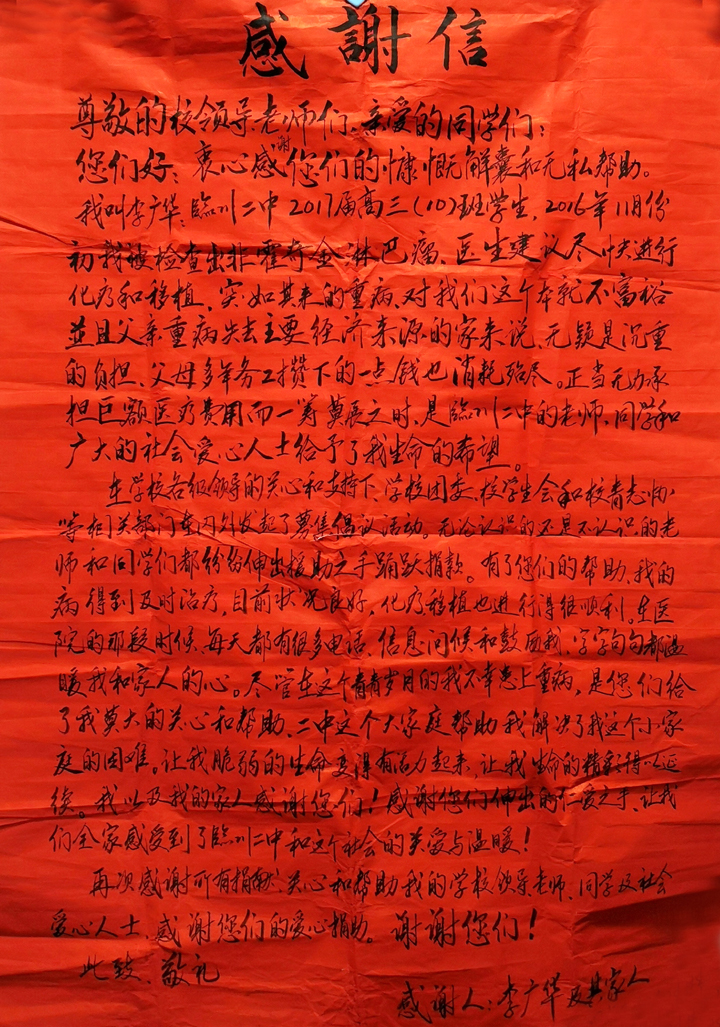 感謝信
尊敬的校领导老师们、亲爱的同学们：
您们好：衷心感谢您们的慷慨解囊和无私帮助。
我叫李广华，臨川二中2017届高三(10)班学生，2016年11月份
初我被检查出非霍奇金淋巴瘤、医生建议尽快进行
化疗和移植，突如其来的重病、对我们这个本就不富裕
並且父亲重病失去主要经济来源的家来说、无疑是沉重
的负担、父母多年务工攒下的一点钱也消耗殆尽。正当无力承
担巨额医疗费用而一筹莫展之时、是臨川二中的老师、同学和
广大的社会爱心人士给予了我生命的希望。
在学校各级领导的关心和支持下、学校团委、校学生会和校青志协
等相关部门在内外发起了募集倡议活动。无论认识的还是不认识的老
师和同学们都纷纷伸出援助之手踊跃捐款。有了您们的帮助、我的
病得到及时治疗，目前状况良好，化疗移植也进行得很顺利。在医
院的那段时候、每天都有很多电话、信息问候和鼓励我、字字句句都温
暖我和家人的心。尽管在这个青青岁月的我不幸患上重病，是您们给
了我莫大的关心和帮助、二中这个大家庭帮助我解决了我这个小家
庭的困难。让我脆弱的生命变得有活力起来、让我生命的精彩得以延
续。我以及我的家人感谢您们！感谢您们伸出的仁爱之手、让我
们全家感受到了臨川二中和这个社会的关爱与温暖！
再次感谢所有捐献、关心和帮助我的学校领导老师、同学及社会
爱心人士、感谢您们的爱心捐助。谢谢您们！
此致、敬礼
感谢人：李广华及其家人